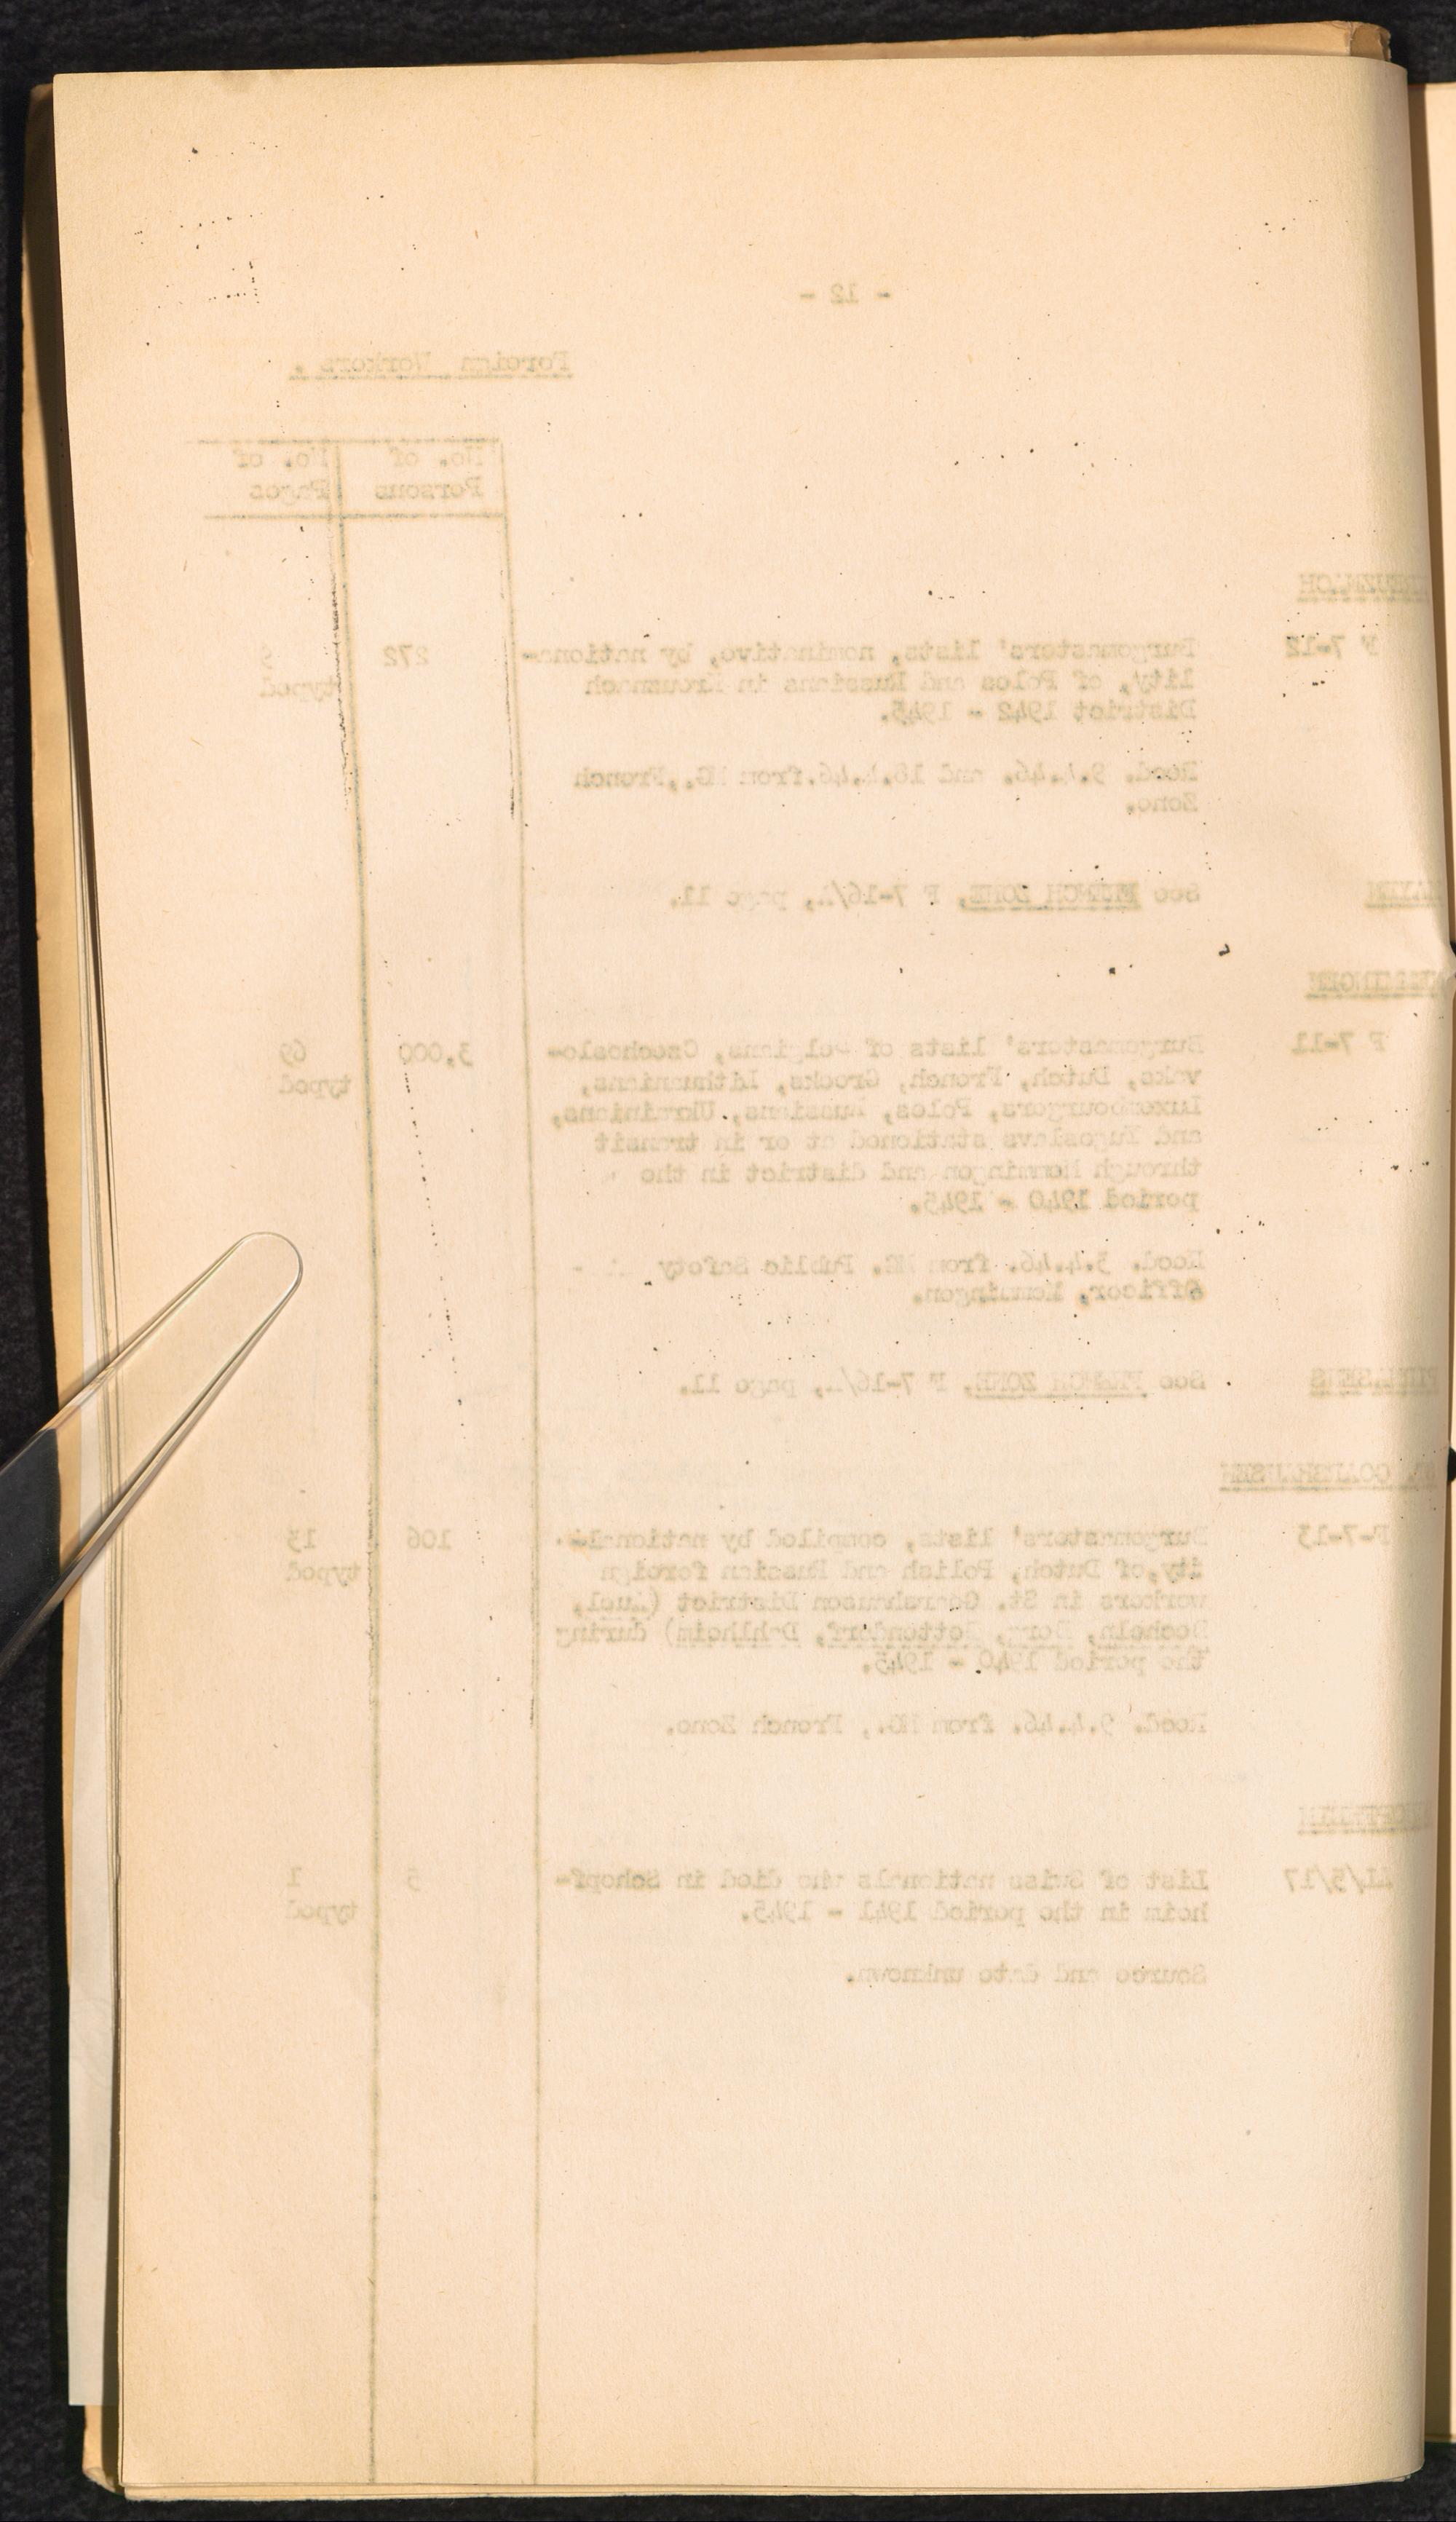 - 12 -
Foreign Workers.
No. of Persons
No. of Pages
F 7-12
Burgomasters' lists, nominative, by nationa-
lity, of Poles and Russians in Kreuznach
District 1942 - 1945.
272
9
typed
Recd. 9.4.46. and 18.4.46. from MG., French
Zone.
See FRENCH ZONE, F 7-16/A, page 11.
F 7-11
Burgomasters' lists of Belgians, Czechoslo-
vaks, Dutch, French, Greeks, Lithuanians,
Luxembourgers, Poles, Russians, Ukrainians,
and Yugoslavs stationed at or in transit
through Memmingen and district in the
period 1940 - 1945.
3,000
69
typed
Recd. 3.4.46. from MG. Public Safety -
Officer, Memmingen.
PIRMASENS
See FRENCH ZONE, F 7-16/A, page 11.
GOARSHAUSEN
F-7-13
Burgomasters' lists, compiled by national-
ity, of Dutch, Polish and Russian foreign
workers in St. Goarshausen District (Auel,
Berg, Bettendorf, Dahlheim) during
the period 1940 - 1945.
106
13
typed
Recd. 9.4.46. from MG., French Zone.
List of Swiss nationals who died in Schopf-
heim in the period 1941 - 1945.
5
1
typed
Source and date unknown.